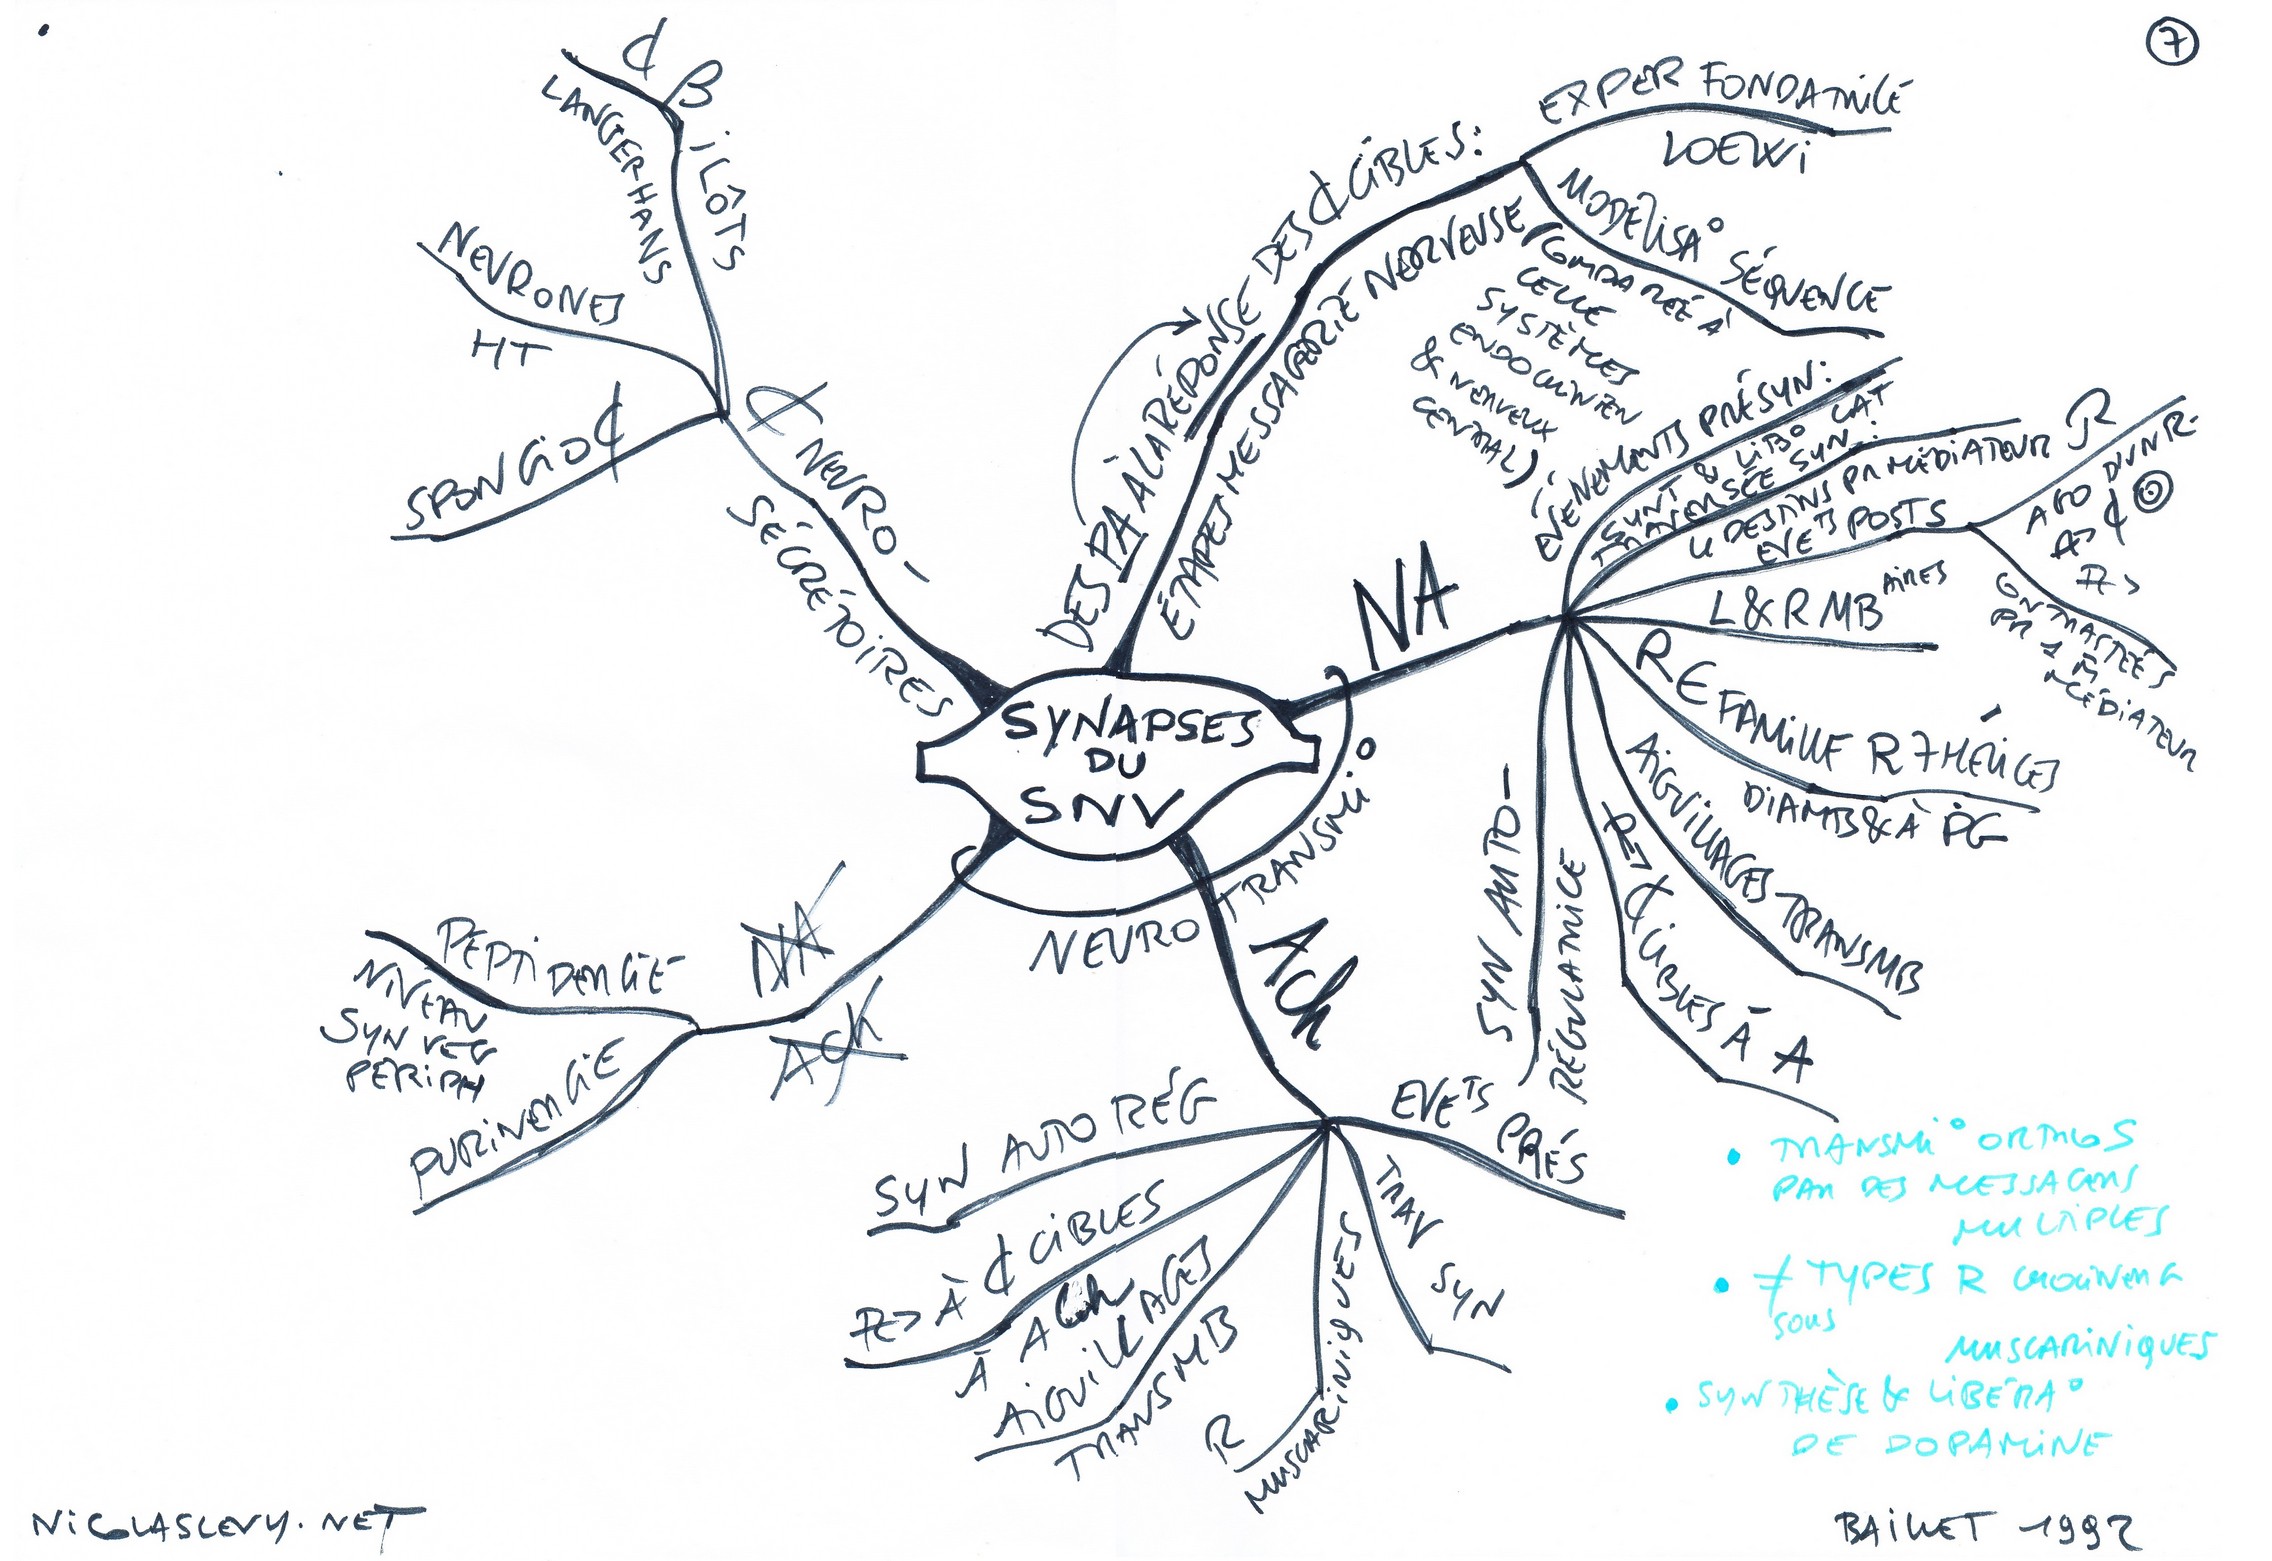 7
SYNAPSES
DU
SNV
DES PA À LA RÉPONSE DES ₵ CIBLES:
ÉTAPES MESSAGERIE NERVEUSE
(COMPARÉE À
CELLE
SYSTÈMES
ENDOCRINIEN
& NERVEUX
CENTRAL)
EXPER FONDATRICE
LOEWI
MODÉLISA°
SÉQUENCE
NA
ÉVÉNEMENTS PRÉSYN:
SYNT & LIB° CAT
TRAVERSÉE SYN.:
DESTINS PR MÉDIATEUR
EVETS POSTS
R
₵
CONTRASTÉES
PR 1 M
MÉDIATEUR
L & R MBAIRES
R ∈ FAMILLE R 7 HÉLICES
DIAMB & À PG
AIGUILLAGES TRANSMB
₵ CIBLES À A
SYN AUTO-
RÉGULATRICE
NEURO TRANSMI°
ACh
EVETS PRÉS
TRAV SYN
R
MUSCARINIQUES
AIGUILLAGES
TRANSMB
À ₵ CIBLES
À ACh
SYN AUTO RÉG
NA
ACh
PEPTIDERGIE
NIVEAU
SYN VEG
PÉRIPH
PURINERGIE
₵ NEURO-
SÉCRÉTOIRES
₵ β ILÔTS
LANGERHANS
NEURONES
HT
SPONGIO₵
• TRANSMI° ORTHOS
PAR DES MESSAGERS
MULTIPLES
• ≠ TYPES R CHOLINERG
SOUS
MUSCARINIQUES
• SYNTHÈSE & LIBÉRA°
DE DOPAMINE
NICOLASLEVY.NET
BAILLET 1992